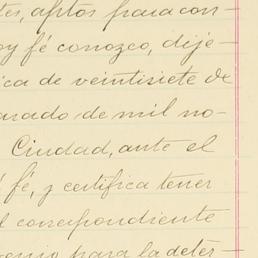 tes, aptos para con-
oy fé conozco, dije-
ica de veintisiete de
arado de mil no-
Ciudad, ante el
fé, y certifica tener
l correspondiente
venio para la deter-